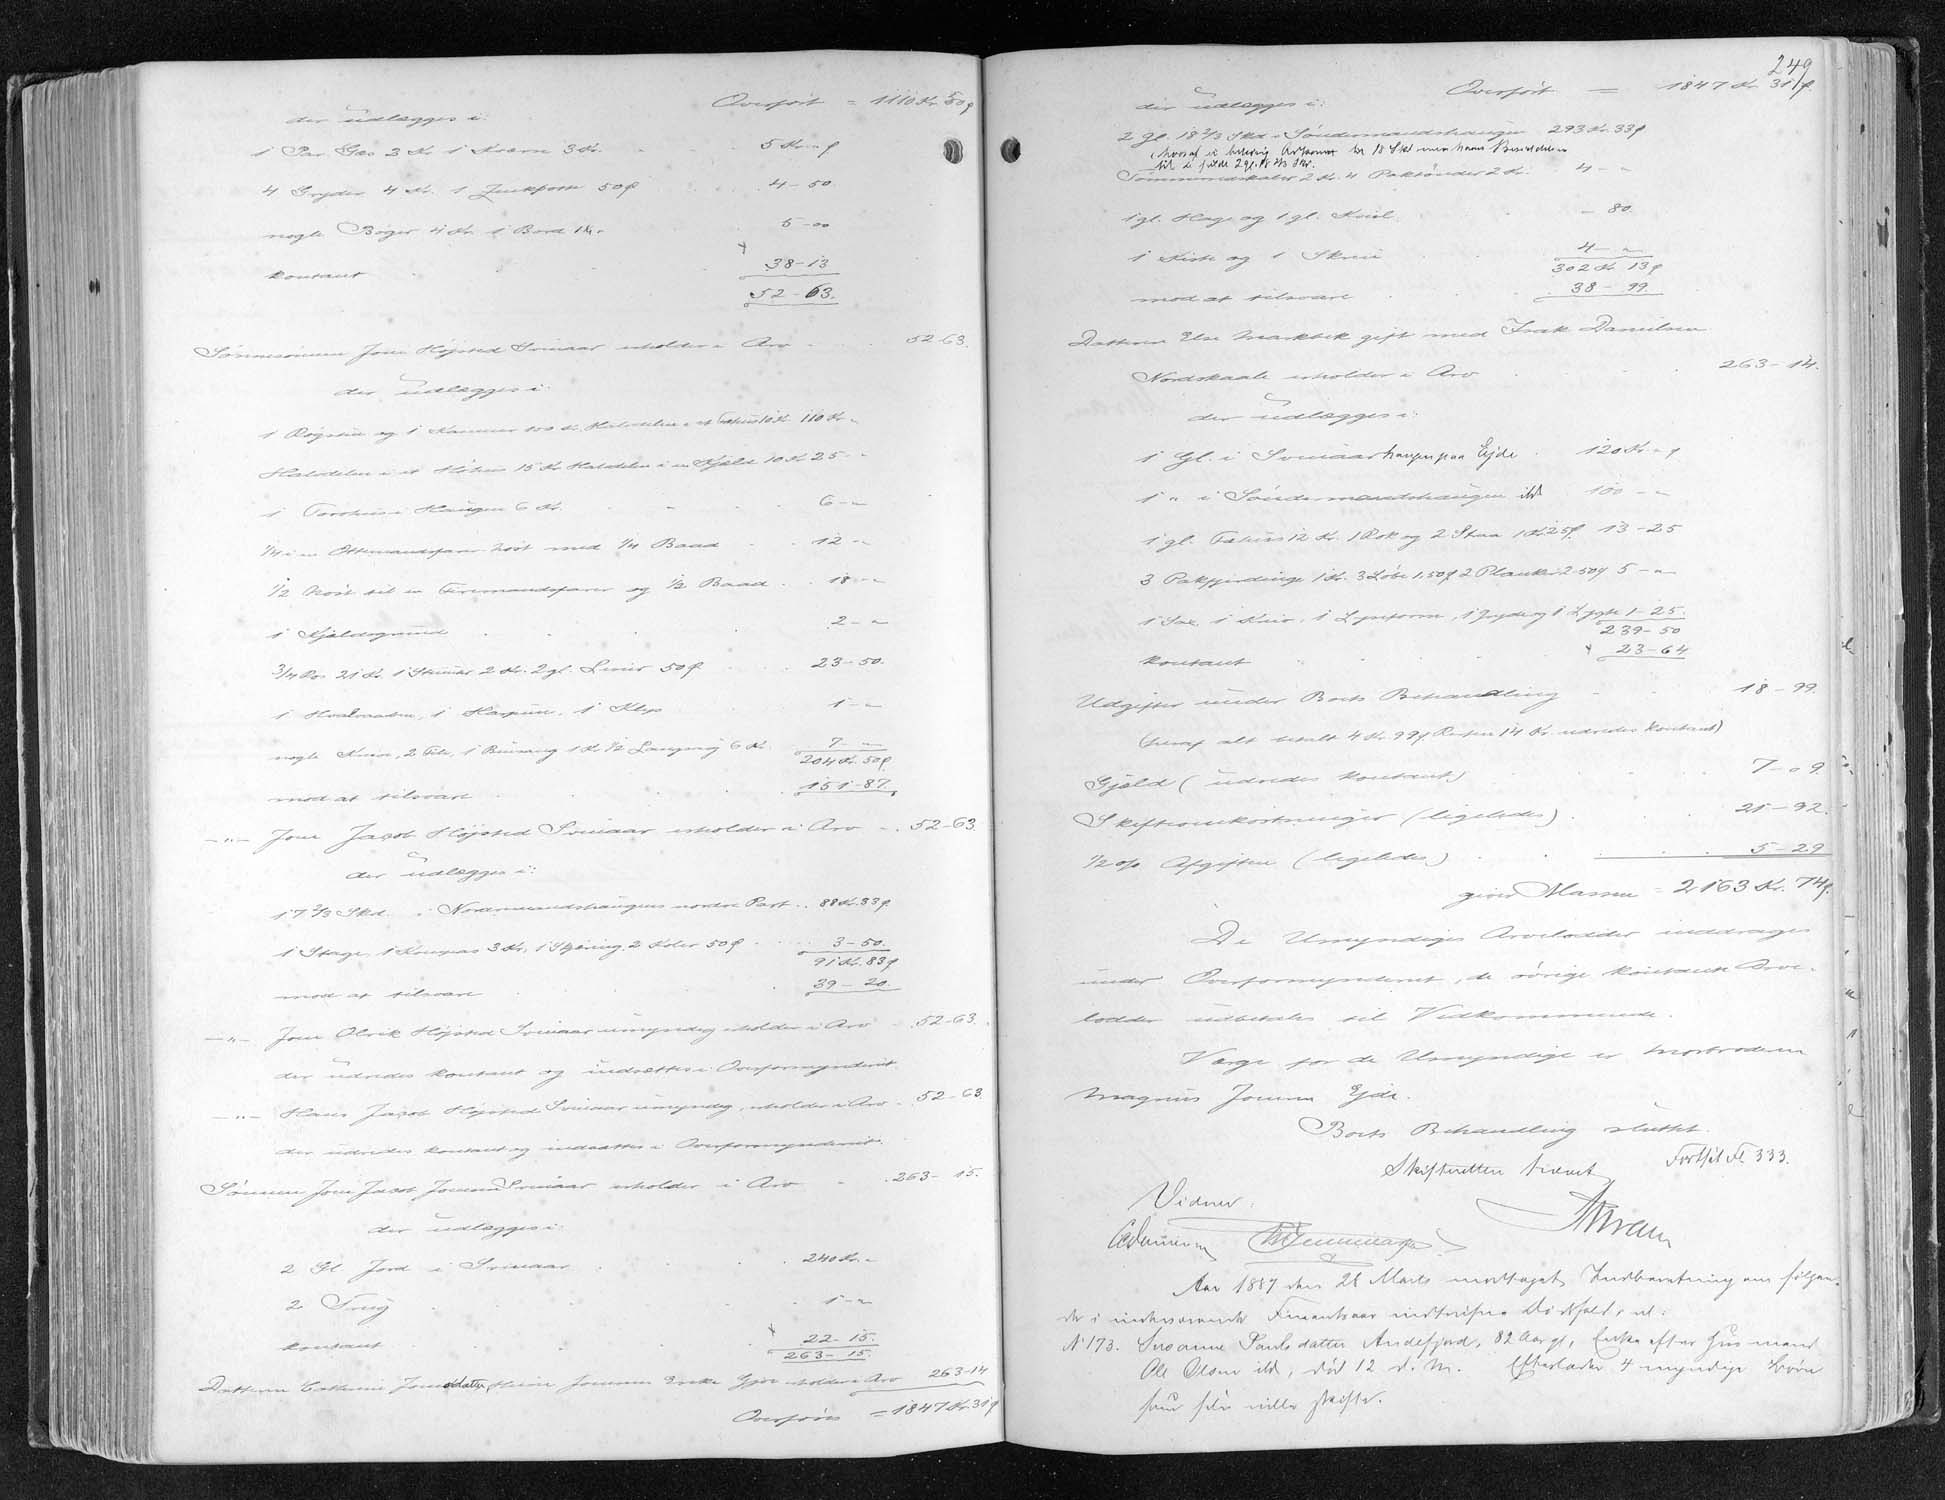 Overført = 1110 Kr. 50 ø
der udlægges i:
1 Par Gæs 3 Kr. 1 Kværn 3 Kr. 5 Kr. " ø
4 Gryder 4 Kr. 1 50 ø 4 - 50
nogle Bøger 4 Kr. 1 Bord 1 Kr. 5 - 00
kontant 38 - 13
52 - 63.
Sønnesønnen Jens Højsted Svinaar erholder i Arv 52-63.
der udlægges i:
1 Røgstue og 1 Kammer 100 Kr. Halvdelen i et Fæhus 10 Kr. 110 Kr. "
Halvdelen i et Høhus 15 Kr. Halvdelen i en Kjæld 10 Kr. 25 - "
1 Torvhus i Haugen 6 Kr. 6 - "
1/4 i en Ottemandsfarer Nøst med 1/4 Baad 12 - "
1/2 Nøst til en Firemandsfarer og 1/2 Baad 18 - "
1 Kjældsgrund 2 - "
3/4 Ko 21 Kr. 1 2 Kr. 2 gl. Liner 50 ø 23 - 50.
1 Hvalvaaben, 1 Harpun, 1 1 - "
nogle Knive, 2 File, 1 1 Kr. 1/2 6 Kr. 7 - "
204 Kr. 50 ø
mod at tilsvare 151 - 87.
- " - Jens Jacob Højsted Svinaar erholder i Arv 52-63.
der udlægges i:
17 2/3 Skd. i Nordmandshaugens nordre Part 88 Kr. 33 ø
1 Stage, 1 Kompas 3 Kr., 1 2 50 ø 3 - 50.
91 Kr. 83 ø
mod at tilsvare 39 - 20.
- " - Jens Olrik Højsted Svinaar umyndig erholder i Arv 52-63.
der udredes kontant og indsættes i Overformynderiet.
- " - Hans Jacob Højsted Svinaar umyndig, erholder i Arv 52-63.
der udredes kontant og indsættes i Overformynderiet.
Sønnen Jens Jacob Joensen Svinaar erholder i Arv 263-15.
der udlægges i:
2 Gl. Jord i Svinaar 240 Kr. "
2 Trug 1 - "
kontant 22 - 15.
263 - 15.
Datteren Cathrine Joensdatter, Joensen Enke Gjov erholder i Arv 263-14
Overføres = 1847 Kr. 31 ø
249
Overført = 1847 Kr. 31 ø
der udlægges i:
2 gl. 18 2/3 Skd. i Søndermandshaugen 293 Kr. 33 ø
2 Kr. 4 Poktønder 2 Kr. 4 - "
1 gl. Hage og 1 gl. - 80
1 Kiste og 1 Skrin 4 - "
302 Kr. 13 ø
mod at tilsvare 38 - 99.
Datteren Else Marike gift med Isak Danielsen
Nordskaale erholder i Arv 263-14.
der udlægges i:
1 Gl. i Svinaarhaugen paa Ejde 120 Kr. " ø
1 " i Søndermandshaugen ibd 100 - "
1 gl. Fæhus 12 Kr. 1 Rok og 2 1 Kr. 25 ø 13 - 25
3 Pakfjerdinge 1 Kr. 3 Løbe 1.50 ø 2 Planker 2.50 ø 5 - "
1 Sax, 1 Kniv, 1 Lyseform, 1 Gryde og 1 Lygte 1 - 25.
239 - 50
kontant 23 - 64
Udgifter under Boets Behandling 18 - 99.
(heraf alt betalt 4 Kr. 99 ø. Resten 14 Kr. udredes kontant)
Gjæld (udredes kontant) 7 - 09.
Skifteomkostninger (ligeledes) 21 - 92.
1/2 o/o Afgiften (ligeledes) 5 - 29
giver Massen = 2163 Kr. 74 ø.
De Umyndiges Arvelodder inddrages
under Overformynderiet, de øvrige kontante Arve-
lodder udbetales til Vedkommende.
Værge for de Umyndige er Morbroderen
Magnus Joensen Ejde.
Boets Behandling sluttet.
Skifteretten hævet
Fortsat Fl. 333.
Vidner.
Aar 1887 den 28 Marts modtaget Indberetning om følgen-
de i indeværende Finantsaar indtrufne Dødsfald, nl:
N 173. Susanne Poulsdatter Andefjord, 82 Aar gl, Enke efter Husmand
Ole Olsen ibd, død 12 d. M. Efterlader 4 myndige Børn
som selv ville skifte.